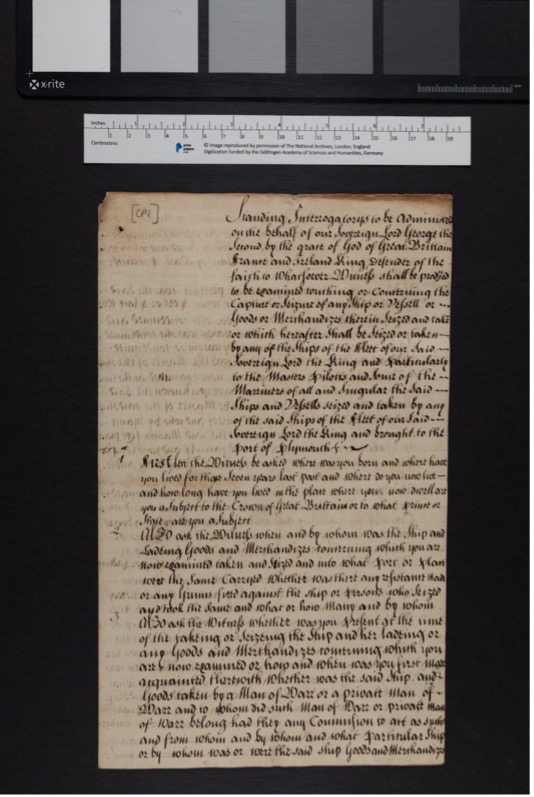 x-rite
Inches
1 2 3 4 5 6 7
1 2 3 4 5 6 7 8 9 10 11 12 13 14 15 16 17 18 19
Centimetres
© Image reproduced by permission of The National Archives, London, England
Digitization funded by the Göttingen Academy of Sciences and Humanities, Germany
[CP1]
Standing Interrogatorys to be Administred
on the behalf of our Sovereign Lord George the
Second by the grace of God of Great Brittain
France and Ireland King Defender of the
faith to Whatsoever Witness shall be
to be Examined touching or Concerning the
Capture or Seizure of any Ship or Vessell or
Goods or Merchandizes therein Seized and taken
or which hereafter Shall be Seized or taken
by any of the Ships of the Fleet of our Said
Sovereign Lord the King and Particularly
to the Masters Pilotes and Some of the
Marriners of all and Singular the Said
Ships and Vessells Seized and taken by any
of the Said Ships of the Fleet of our Said
Sovereign Lord the King and brought to the
Port of Plymouth
1
First let the Witness be asked where was you born and where have
you lived for these Seven years last past and where do you now live
and how long have you lived in the place where you now dwell are
you a Subject to the Crown of Great Brittain or to what Prince or
State are you a Subject
2
Also ask the Witness when and by whom was the Ship and
Lading Goods and Merchandizes Concerning which you are
now examined taken and Seized and into what Port or place
were the Same Carryed Whether was there any resistant made
or any Gunns fired against the Ship or persons who Seized
and took the Same and what or how Many and by whom
3
Also ask the Witness whether was you Present at the time
of the takeing or Seizeing the Ship and her ladeing or
any Goods and Merchandizes concerning which you
are now examined or how and when was you first made
acquainted therewith Whether was the Said Ship and
Goods taken by a Man of Warr or a private Man of
Warr and to Whom did Such Man of Warr or private Man
of Warr belong had they any Commission to act as Such
and from whom and by whom and what Particular Ship
or by whom was or were the said Ship Goods and Merchandizes